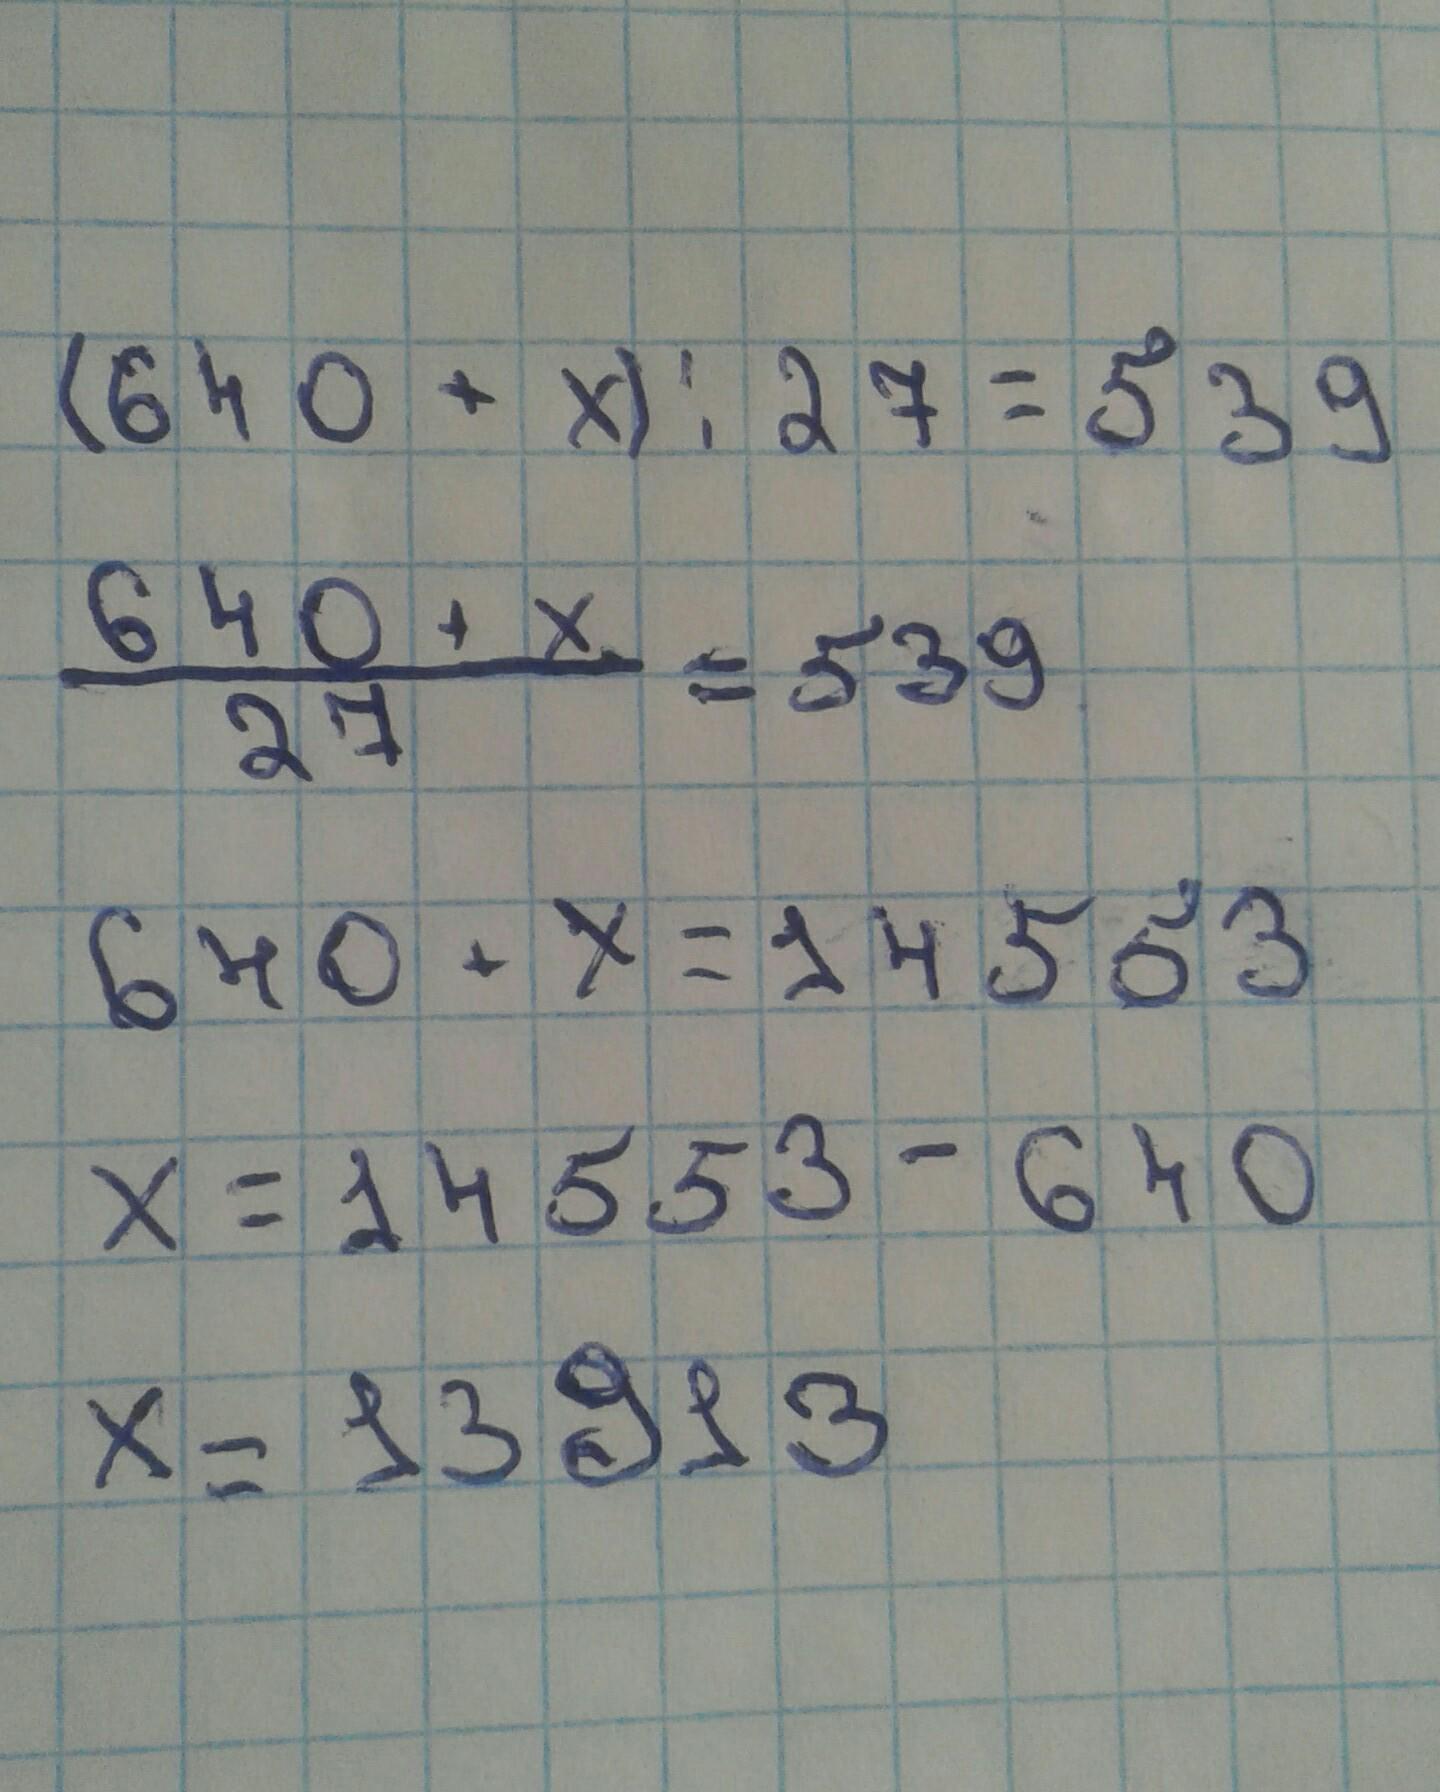 (640 + x) : 27 = 539
640 + x / 27 = 539
640 + x = 14553
x = 14553 - 640
x = 13913